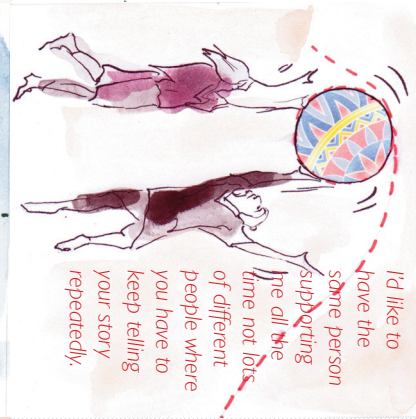 I'd like to
have the
same person
supporting
me all the
time not lots
of different
people where
you have to
keep telling
your story
repeatedly.